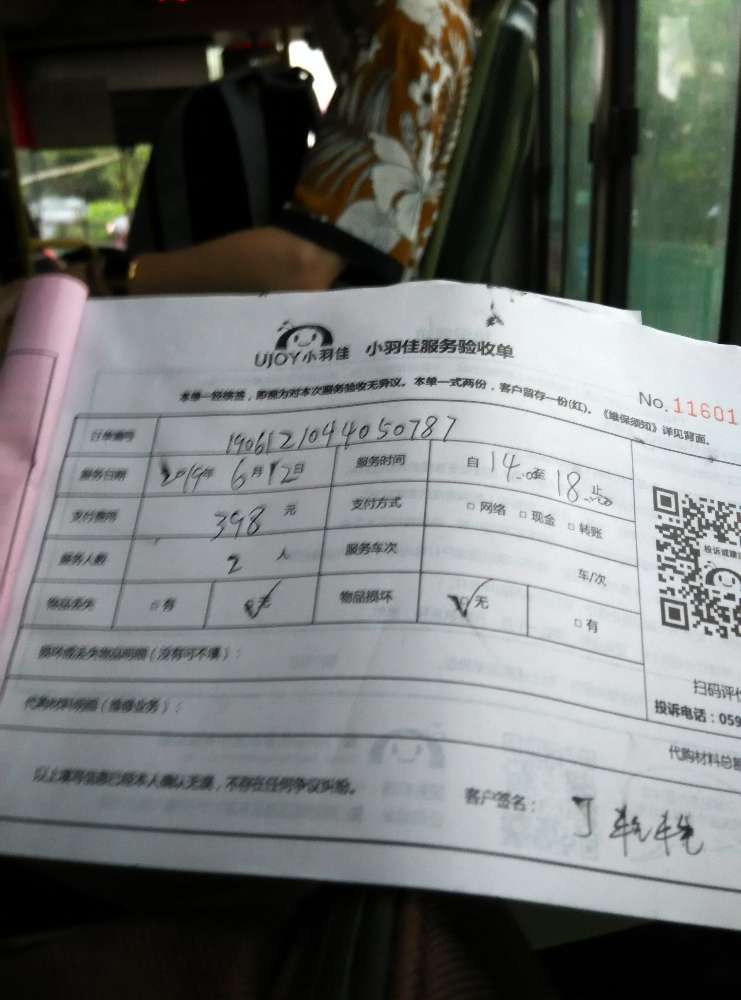 UJOY小羽佳 小羽佳服务验收单
No.11601
本单一经核签，即视为对本次服务验收无异议。本单一式两份，客户留存一份(红)。《维保须知》详见背面。
订单编号 1906121044050787
服务日期 2019年6月12日 服务时间 自14:00至18:00止
支付费用 398元 支付方式 □网络 □现金 □转账
服务人数 2人 服务车次 车/次
物品丢失 □有 ☑无 物品损坏 ☑无 □有
损坏或丢失物品明细（没有可不填）：
代购材料明细（维修业务）：
扫码评价
投诉电话：059
代购材料总额
以上填写信息已经本人确认无误，不存在任何争议纠纷。
客户签名：丁